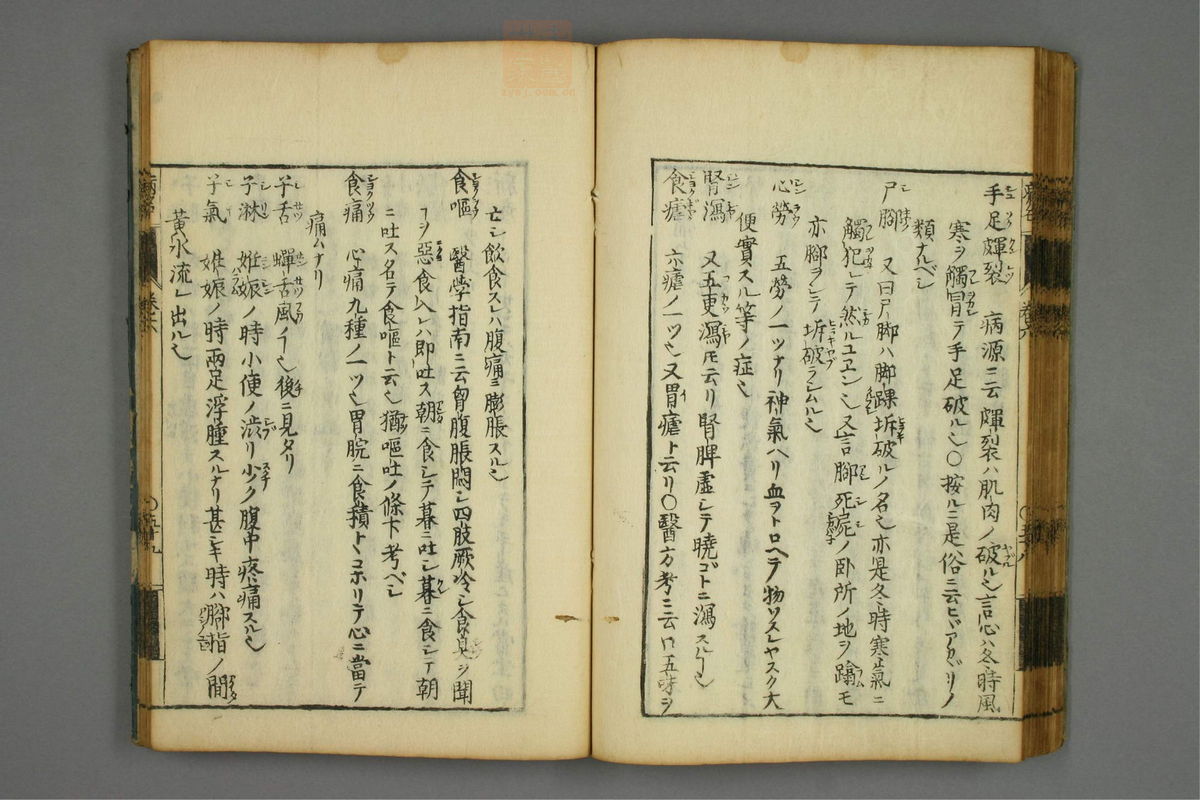 手足皹裂 病源ニ云皹裂ハ肌肉ノ破ルヽ也言心ハ冬時風
寒ヲ觸冒テ手足破ルヽ也〇按ルニ是俗ニ云ヒビアカガリノ
類ナルベシ
尸脚 又曰尸脚ハ脚踝坼破ルノ名也亦是冬時寒氣ニ
觸犯レテ然ルユヱン也又言脚死屍ノ臥所ノ地ヲ踰モ
亦脚ヲシテ坼破ラシムル也
心勞 五勞ノ一ツナリ神氣ハリ血ヲトロヘテ物ワスレヤスク大
便實スル等ノ症也
腎瀉 又五更瀉モ云リ腎脾虚シテ曉ゴトニ瀉スルヿ也
食瘧 六瘧ノ一ツ也又胃瘧ト云リ〇醫方考ニ云口五味ヲ
亡シ飲食スレハ腹痛ミ膨脹スル也
食嘔 醫學指南ニ云胷腹脹悶シ四肢厥冷シ食臭ヲ聞
ヿヲ惡食入レハ即吐ス朝ニ食シテ暮ニ吐シ暮ニ食シテ朝
ニ吐ス名テ食嘔ト云也猶嘔吐ノ條下考ベシ
食痛 心痛九種ノ一ツ也胃脘ニ食積トヾコホリテ心ニ當テ
痛ムナリ
子舌 蟬舌風ノヿ也後ニ見タリ
子淋 姙娠ノ時小便ノ澁リ少ク腹中疼痛スル也
子氣 姙娠ノ時兩足浮腫スルナリ甚シキ時ハ脚指ノ間
黄水流レ出ル也